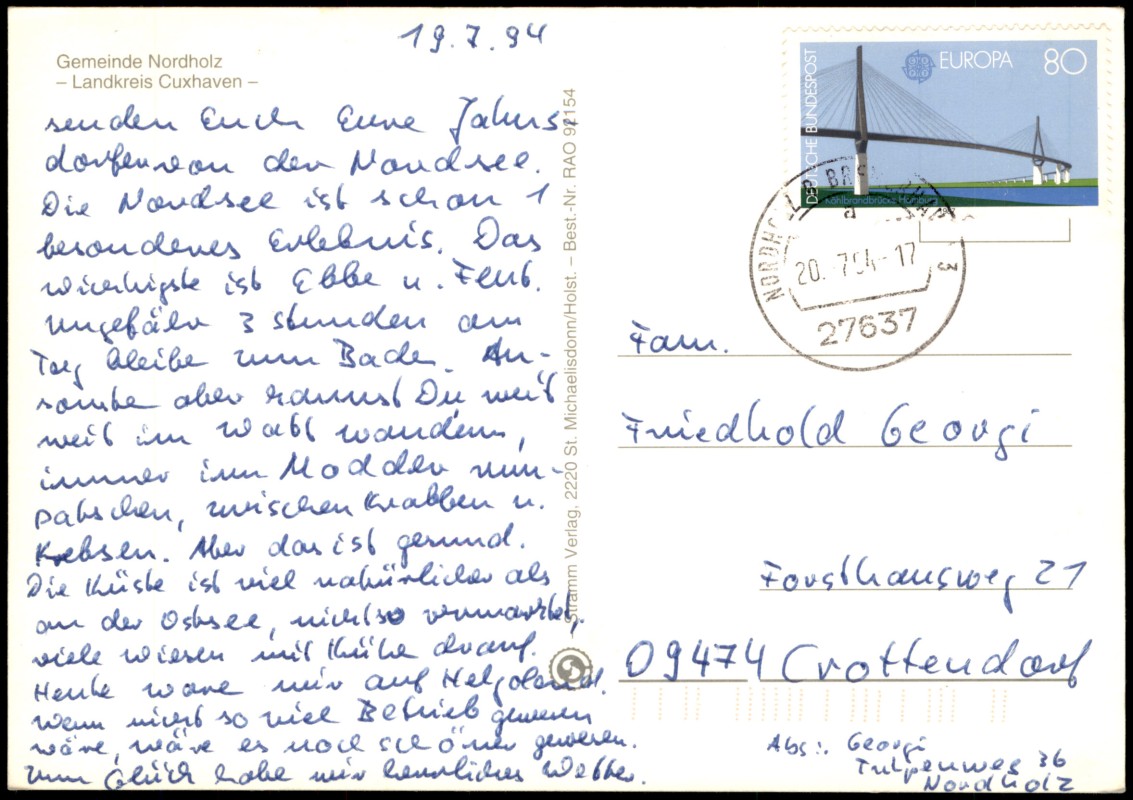 19.7.94
Gemeinde Nordholz
– Landkreis Cuxhaven –
senden Euch Eure Jahns-
dorfer von der Nordsee.
Die Nordsee ist schon 1
besonderes Erlebnis. Das
wichigste ist Ebbe u. Flut.
Ungefähr 3 Stunden am
Tag bleibe zum Baden. An-
sonsten aber kannst Du weit
weit im Watt wandern,
immer im Modder rum-
patschen, zwischen Krabben u.
Krebsen. Aber das ist gesund.
Die Küste ist viel natürlicher als
an der Ostsee, nicht so vermarktet,
viele Wiesen mit Kühe drauf.
Heute ware mir auf Helgoland.
Wenn nicht so viel Betrieb gewesen
wäre, wäre es noch schöner gewesen.
Zum Glück habe mir herrliches Wetter.
Stramm Verlag, 2220 St. Michaelisdonn/Holst. – Best.-Nr. RAO 92154
DEUTSCHE BUNDESPOST
EUROPA 80
Köhlbrandbrücke Hamburg
20.-7.94-17
27637
Fam.
Friedhold Georgi
Forsthausweg 21
09474 Crottendorf
Abs.: Georgi
Tulpenweg 36
Nordholz